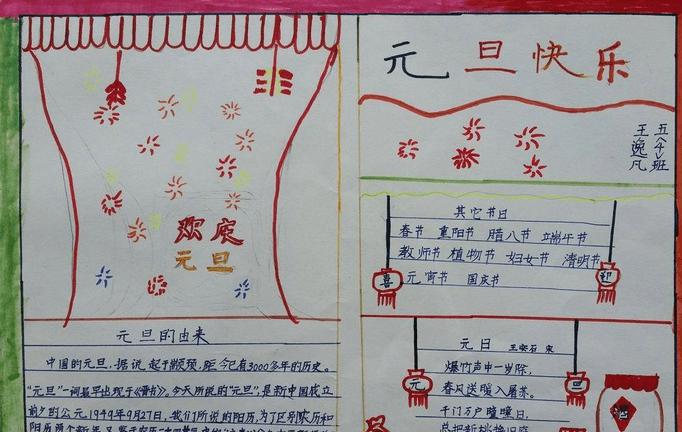 欢庆
元旦
元旦的由来
中国的元旦，据说起于颛顼，距今已有3000多年的历史。
"元旦"一词最早出现于《晋书》。今天所说的"元旦"，是新中国成立
前夕的公元1949年9月27日，我们所说的阳历，为了区别农历和
阳历两个新年，又鉴于农历二十四节气
元旦快乐
五〈4〉班
王逸凡
其它节日
春节 重阳节 腊八节 端午节
教师节 植物节 妇女节 清明节
元宵节 国庆节
喜
迎
元日 王安石 宋
爆竹声中一岁除，
春风送暖入屠苏。
千门万户曈曈日，
总把新桃换旧符
元
旦